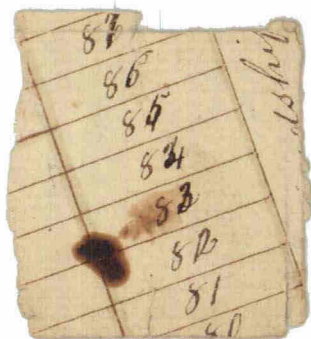 87
86
85
84
83
82
81
80